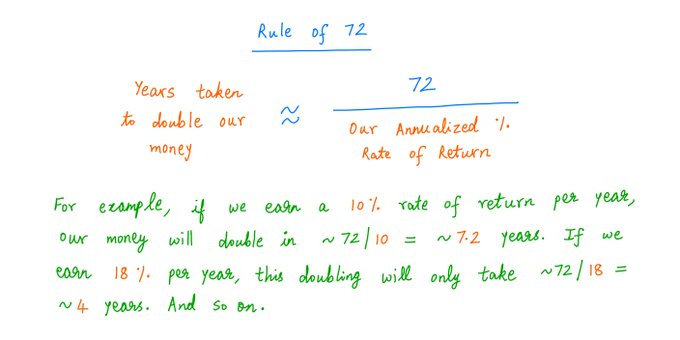 Rule of 72
Years taken
to double our
money
≈
72
Our Annualized %
Rate of Return
For example, if we earn a 10% rate of return per year,
our money will double in ~72/10 = ~7.2 years. If we
earn 18% per year, this doubling will only take ~72/18 =
~4 years. And so on.